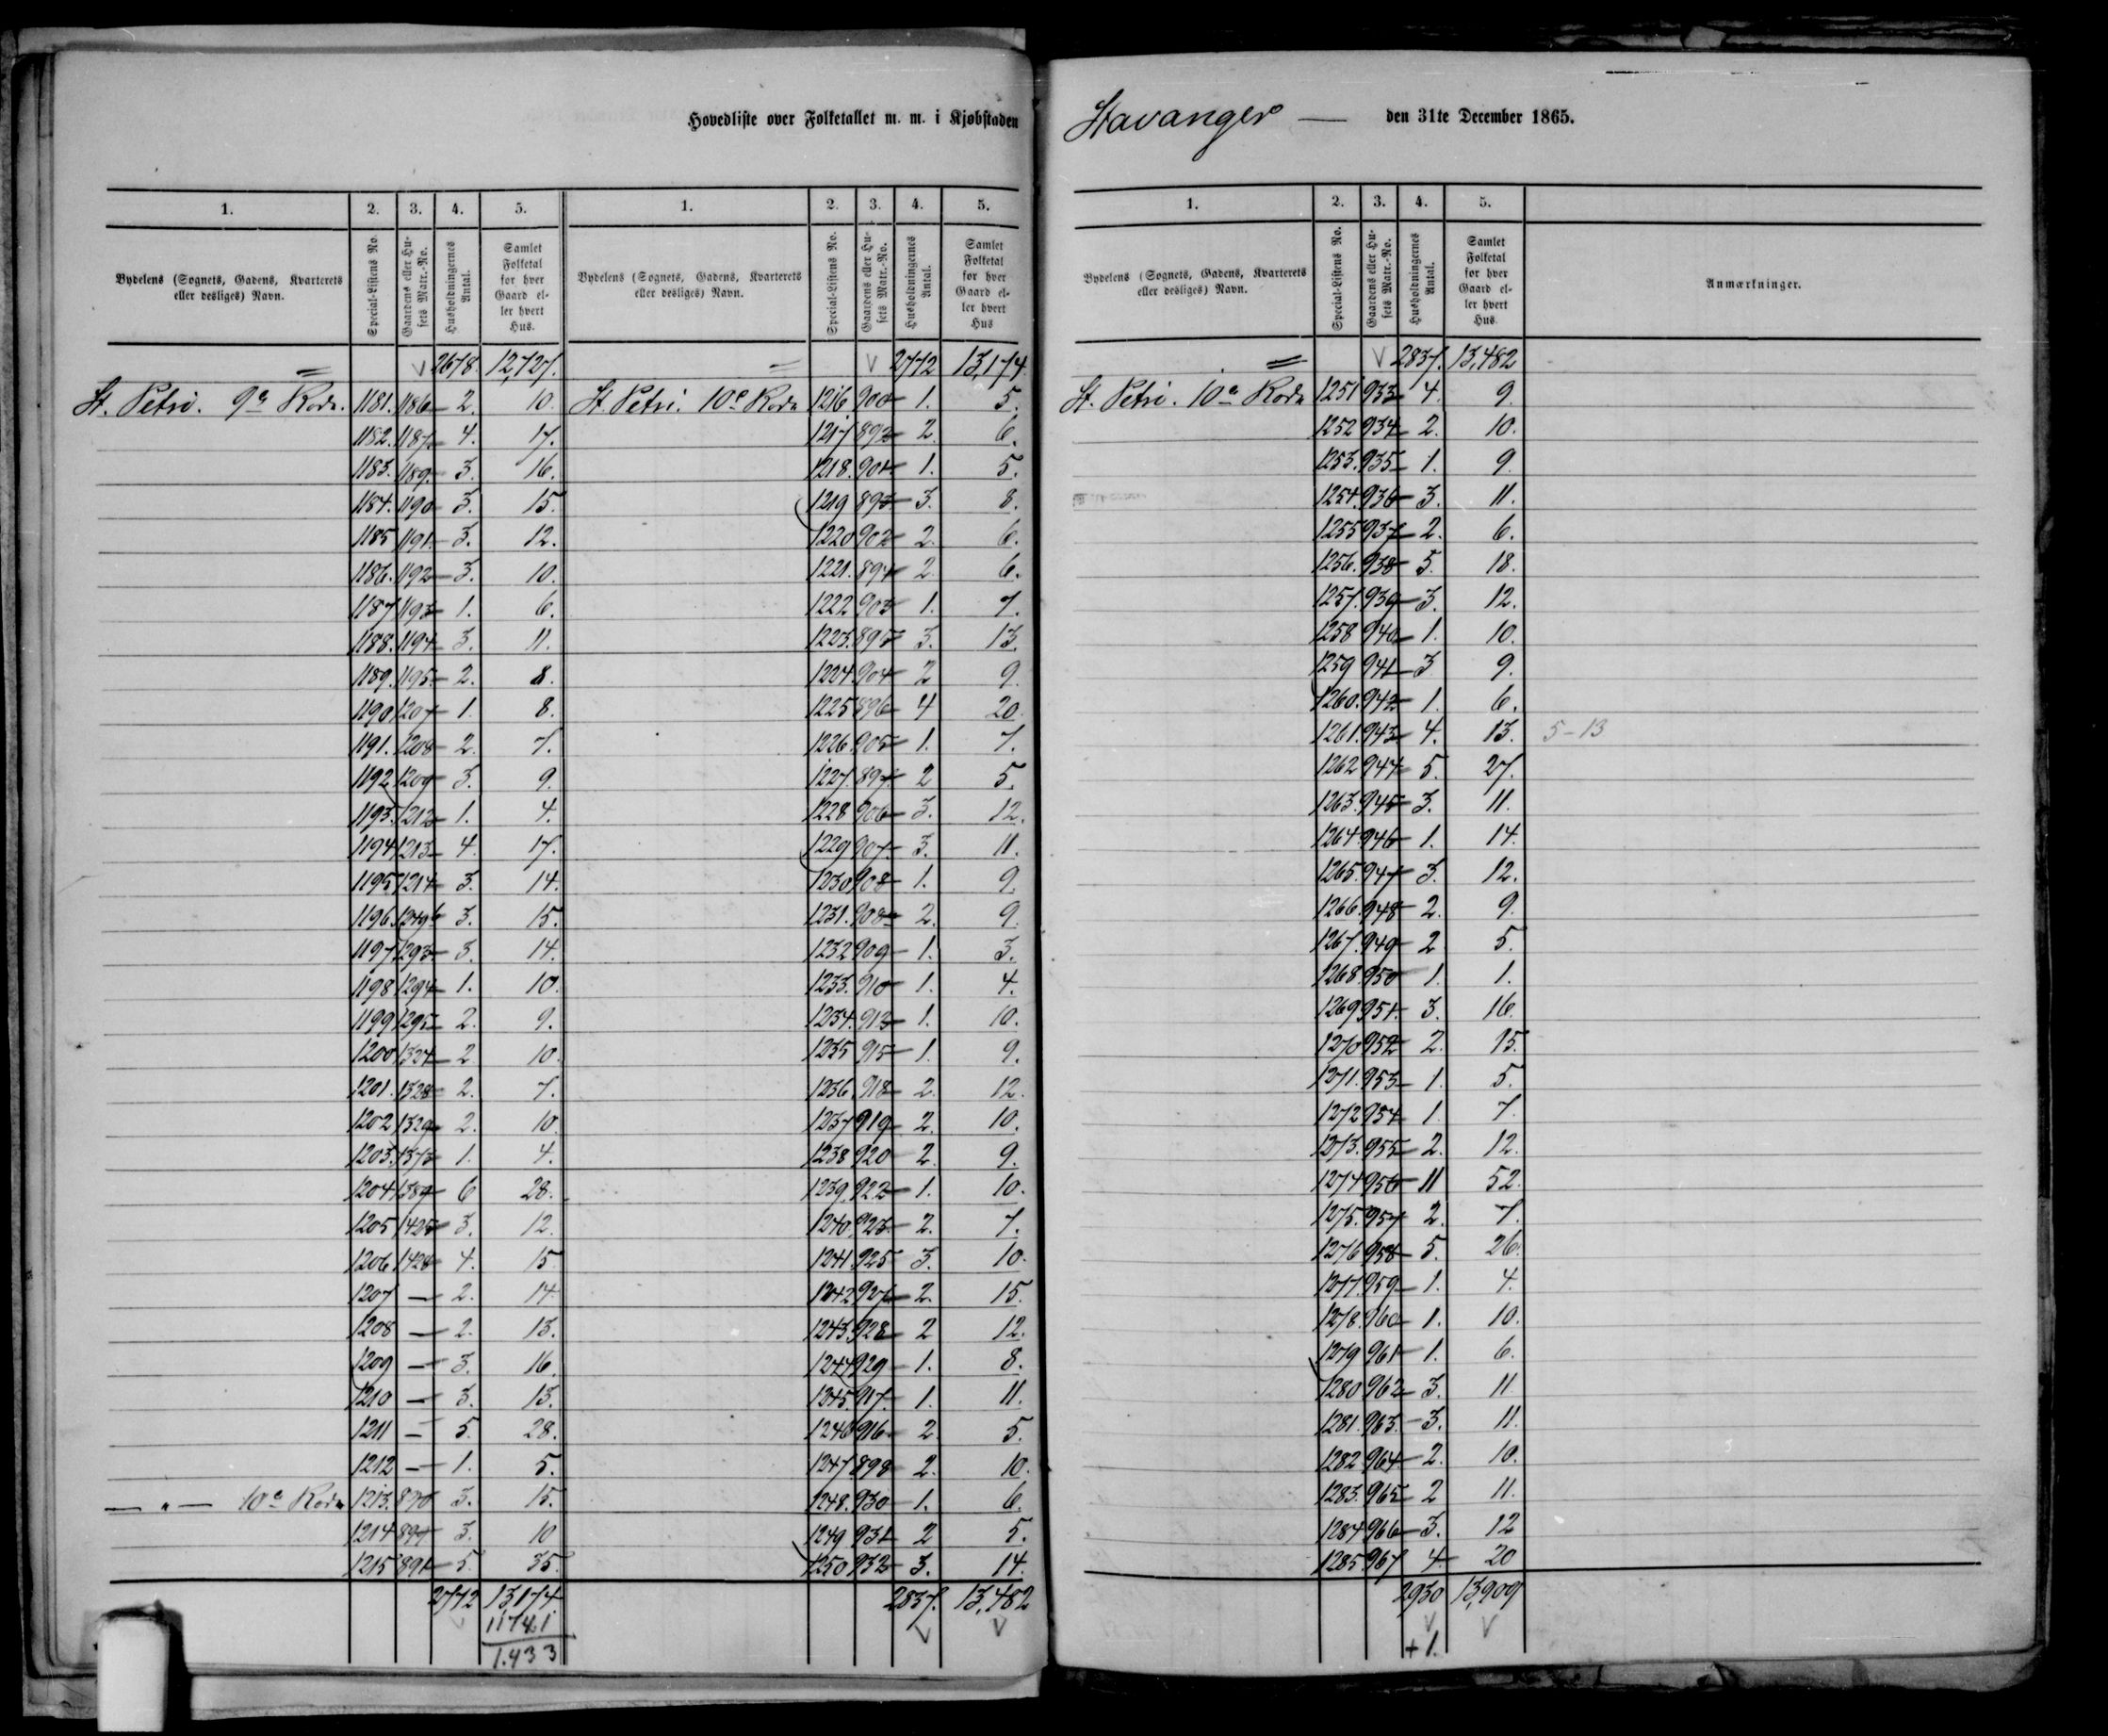 Hovedliste over Folketallet m. m. i Kjøbstaden Stavanger — den 31te December 1865.
1. 2. 3. 4. 5.
Bydelens (Sognets, Gadens, Kvarterets eller desliges) Navn. Special-Listens No. Gaardens eller Husets Matr.-No. Husholdningernes Antal. Samlet Folketal for hver Gaard eller hvert Hus.
2678. 12,727.
St. Petri. 9e Rode. 1181. 1186 2. 10.
1182. 1187 4. 17.
1183. 1189. 3. 16.
1184. 1190 3. 15.
1185 1191. 3. 12.
1186. 1192 3. 10.
1187 1193 1. 6.
1188. 1194 3. 11.
1189. 1195. 2. 8.
1190 1207 1. 8.
1191. 1208 2. 7.
1192. 1209 3. 9.
1193. 1212 1. 4.
1194 1213 4. 17.
1195 1214 3. 14.
1196. 1249b 3. 15.
1197 1293 3. 14.
1198 1294 1. 10.
1199 1295 2. 9.
1200 1327 2. 10.
1201. 1328 2. 7.
1202 1329 2. 10.
1203. 1373 1. 4.
1204 1389 6 28.
1205 1425 3. 12.
1206. 1428 4. 15.
1207 — 2. 14.
1208 — 2. 13.
1209 — 3. 16.
1210 — 3. 13.
1211 — 5. 28.
1212 — 1. 5.
— " — 10e Rode 1213. 890 3. 15.
1214 3. 10
1215 891 5. 35.
2772 13,174
11741
1.433
1. 2. 3. 4. 5.
Bydelens (Sognets, Gadens, Kvarterets eller desliges) Navn. Special-Listens No. Gaardens eller Husets Matr.-No. Husholdningernes Antal. Samlet Folketal for hver Gaard eller hvert Hus
2772 13,174
St. Petri. 10e Rode 1216 900 1. 5.
1217 892 2. 6.
1218. 901 1. 5.
1219 893 3. 8.
1220 902 2. 6.
1221. 894 2. 6.
1222 903 1. 7.
1223. 895 3. 13.
1224. 904 2 9.
1225 896 4 20.
1226. 905 1. 7.
1227. 897. 2 5.
1228 906 3. 12.
1229 907. 3. 11.
1230 908 1. 9.
1231. 908a 2. 9.
1232 909 1. 3.
1233. 910 1. 4.
1234. 913 1. 10.
1235 915 1. 9.
1236. 918 2. 12.
1237 919 2. 10.
1238 920 2. 9.
1239. 922 1. 10.
1240. 923. 2. 7.
1241. 925 3. 10.
1242. 927 2. 15.
1243. 928 2 12.
1244 929 1. 8.
1245. 917. 1. 11.
1246 916 2. 5.
1247. 898 2. 10.
1248. 930 1. 6.
1249 931 2 5.
1250 932 3. 14.
2837. 13,482
1. 2. 3. 4. 5.
Bydelens (Sognets, Gadens, Kvarterets eller desliges) Navn. Special-Listens No. Gaardens eller Husets Matr.-No. Husholdningernes Antal. Samlet Folketal for hver Gaard eller hvert Hus. Anmærkninger.
2837. 13,482
St. Petri. 10e Rode 1251 933 4. 9.
1252 934 2. 10.
1253. 935 1. 9.
1254. 936 3. 11.
1255 937 2. 6.
1256. 938 5. 18.
1257. 939 3. 12.
1258 940 1. 10.
1259 941 3 9.
1260. 942 1. 6.
1261. 943 4. 13. 5-13
1262 944 5. 27.
1263. 945 3. 11.
1264. 946 1. 14.
1265. 947 3. 12.
1266. 948 2. 9.
1267. 949 2 5.
1268. 950 1. 1.
1269 951. 3. 16.
1270 952 2. 15.
1271. 953 1. 5.
1272 954 1. 7.
1273. 955 2. 12.
1274 956 11 52.
1275. 957 2. 7.
1276 958 5. 26.
1277. 959 1. 4.
1278. 960 1. 10.
1279 961 1. 6.
1280 962 3. 11
1281. 963. 3. 11.
1282 964 2. 10.
1283. 965 2 11.
1284 966 3. 12
1285. 967 4 20
2930 13,909
+ 1.